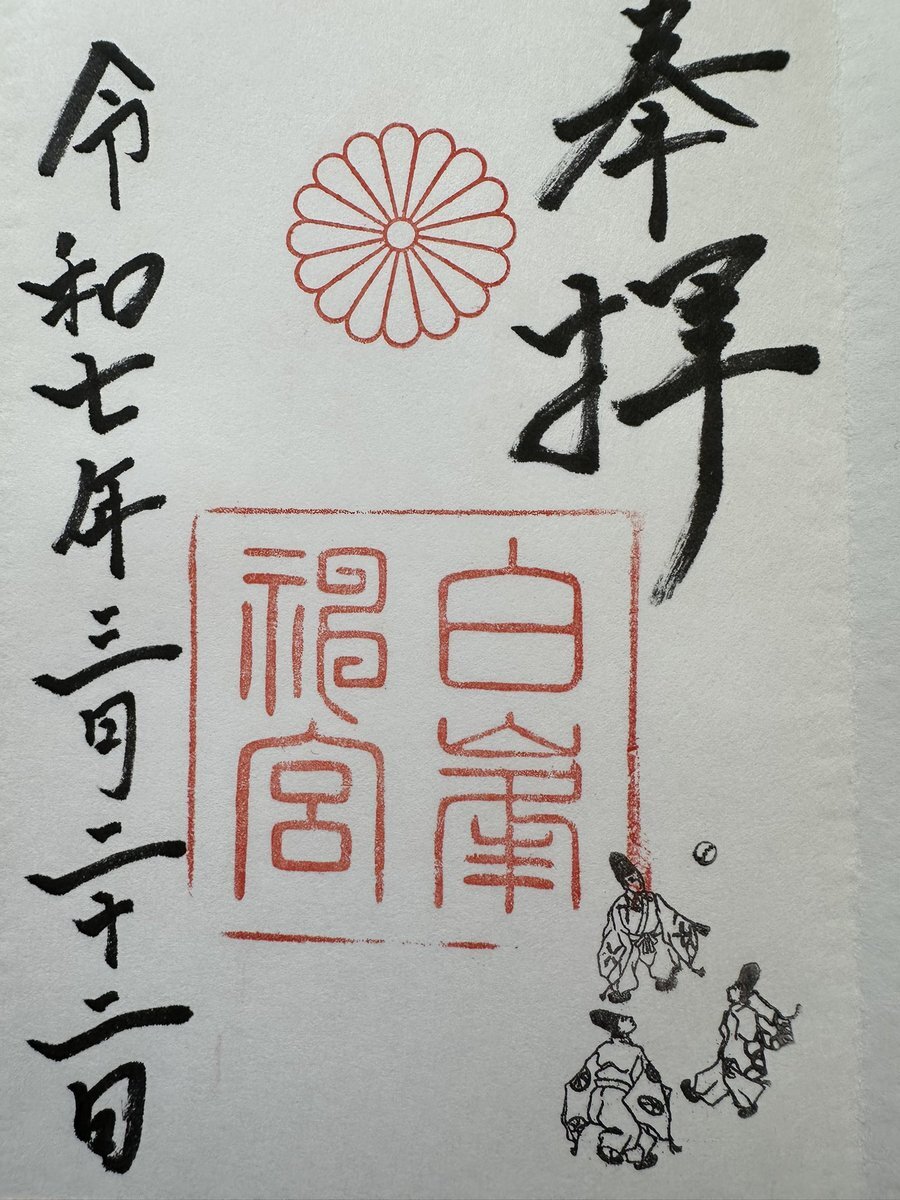 奉拝
白峯
神宮
令和七年三月二十二日